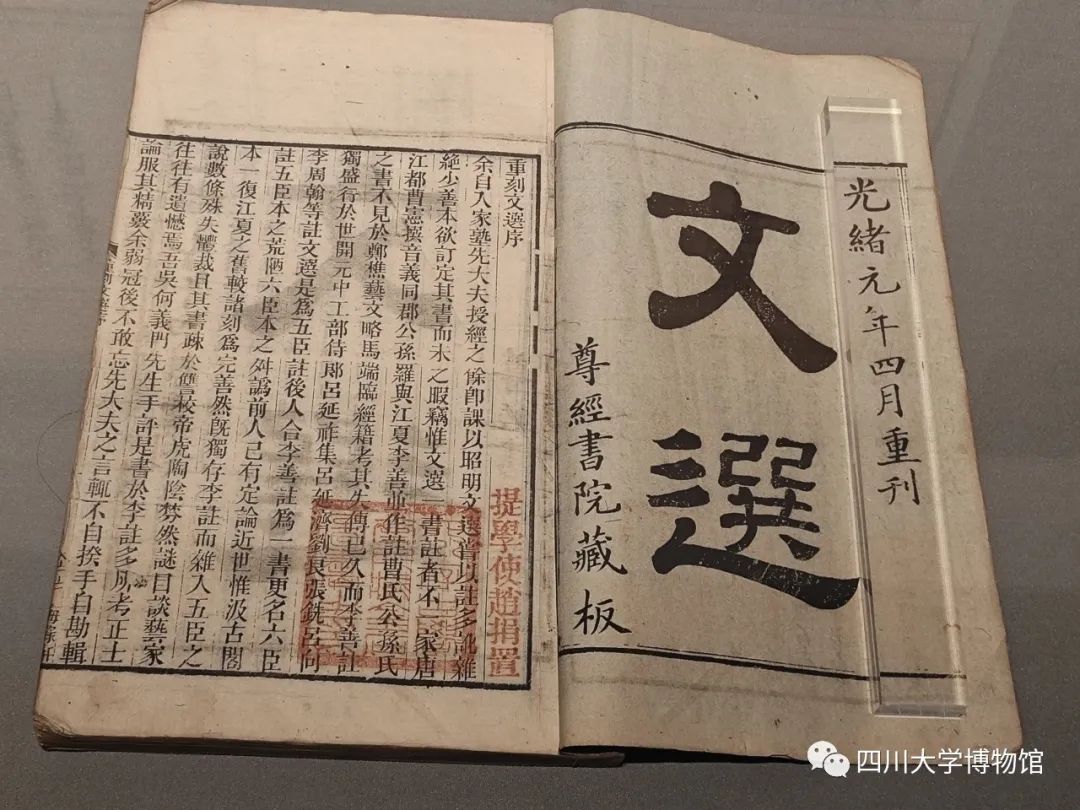 光緒元年四月重刊
文選
尊經書院藏板
重刻文選序
余自入家塾先大夫授經之餘卽課以昭明文選嘗以註多訛雜
絶少善本欲訂定其書而未之暇竊惟文選一書註者不一家唐
江都曹憲撰音義同郡公孫羅與江夏李善並作註曹氏公孫氏
之書不見於鄭樵藝文略馬端臨經籍考其失傳已久而李善註
獨盛行於世開元中工部侍郞呂延祚集呂延濟劉良張銑呂向
李周翰等註文選是爲五臣註後人合李善註爲一書更名六臣
註五臣本之荒陋六臣本之舛譌前人已有定論近世惟汲古閣
本一復江夏之舊較諸刻爲完善然旣獨存李註而雜入五臣之
說數條殊失鬱裁且其書踈於讐校帝虎陶陰棼然謎目談藝家
往往有遺憾焉吾吳何義門先生手評是書於李註多所考正士
論服其精覈余弱冠後不敢忘先大夫之言輒不自揆手自勘輯
提學使趙捐置
四川大学博物馆